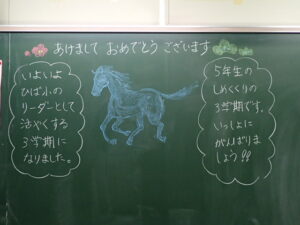 あけまして おめでとう ございます
いよいよ
ひば小の
リーダーとして
活やくする
3学期に
なりました。
5年生の
しめくくりの
3学期です。
いっしょに
がんばりま
しょう!!